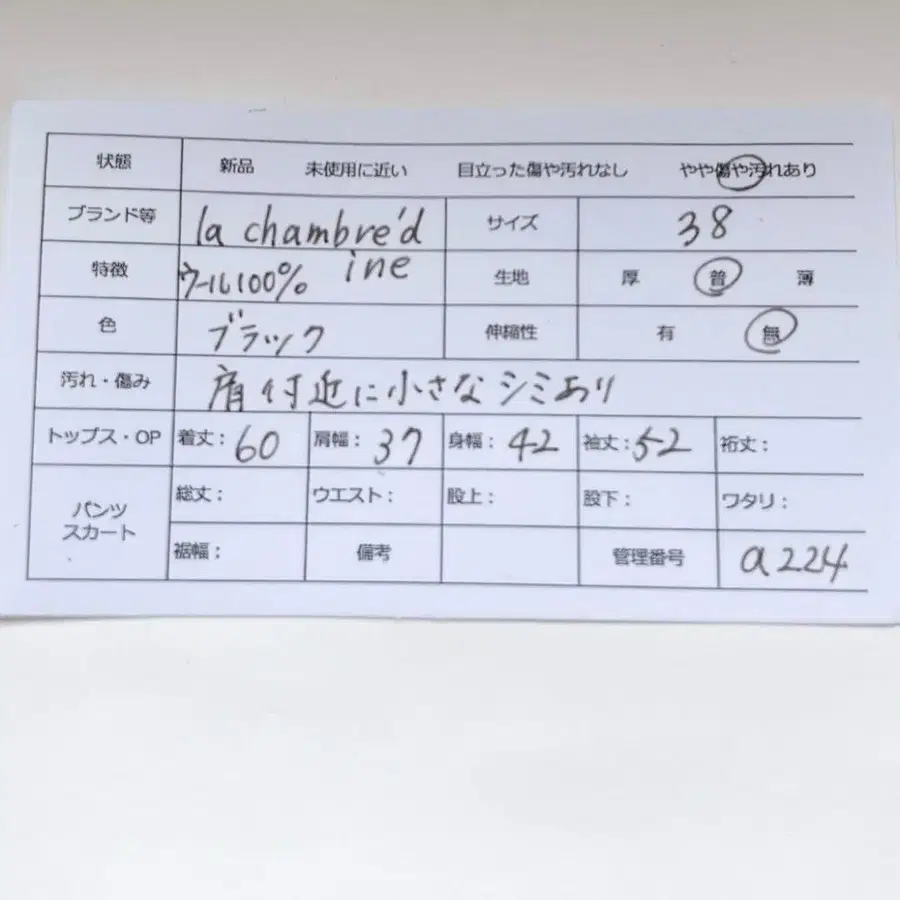 状態 新品 未使用に近い 目立った傷や汚れなし やや傷や汚れあり
ブランド等 la chambre'd サイズ 38
ine
特徴 ウール100% 生地 厚 普 薄
色 ブラック 伸縮性 有 無
汚れ・傷み 肩付近に小さなシミあり
トップス・OP 着丈: 60 肩幅: 37 身幅: 42 袖丈: 52 裄丈:
パンツ
スカート
総丈: ウエスト: 股上: 股下: ワタリ:
裾幅: 備考 管理番号 a224